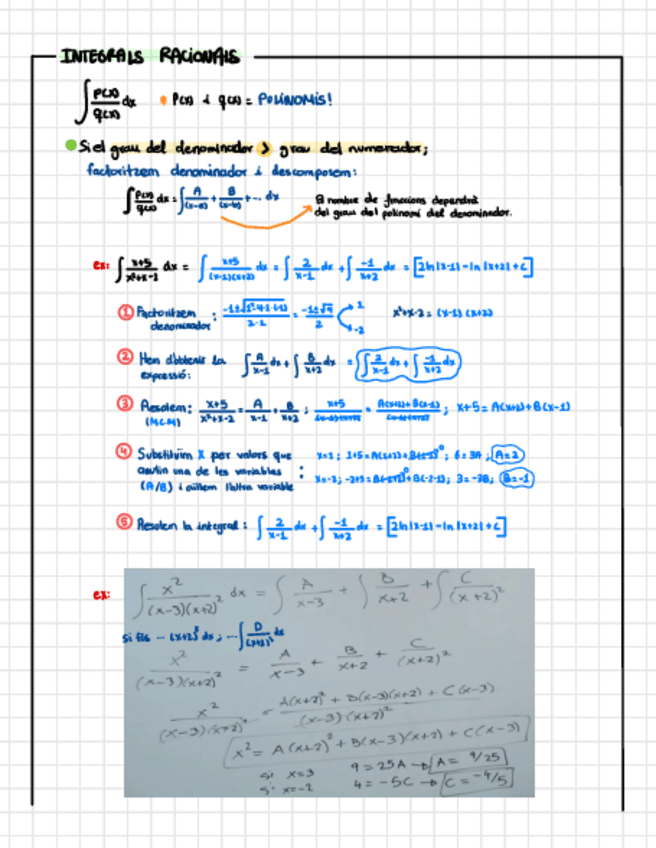 INTEGRALS RACIONALS
∫ P(x)/q(x) dx * P(x) i q(x) = POLINOMIS!
Si el grau del denominador > grau del numerador;
factoritzem denominador i descomposem:
∫ P(x)/q(x) dx = ∫ A/(x-a) + B/(x-b) + ... dx
El nombre de funcions dependrà
del grau del polinomi del denominador.
ex: ∫ x+5/x²+x-2 dx = ∫ x+5/(x-1)(x+2) dx = ∫ 2/x-1 dx + ∫ -1/x+2 dx = [2ln|x-1|-ln|x+2|+C]
① Factoritzem denominador: -1±√1²-4·1·(-2)/2·1 = -1±√9/2 1 -2 x²+x-2 = (x-1)(x+2)
② Hem d'obtenir la expressió: ∫ A/x-1 dx + ∫ B/x+2 dx = ∫ 2/x-1 dx + ∫ -1/x+2 dx
③ Resolem: (M.C.M) x+5/x²+x-2 = A/x-1 + B/x+2 ; x+5 = A(x+2)+B(x-1)
④ Substituïm X per valors que
anul·lin una de les variables :
(A/B) i aïllem l'altra variable
x=1; 1+5=A(1+2)+B(1-1)⁰; 6=3A; A=2
x=-2; -2+5=A(-2+2)⁰+B(-2-1); 3=-3B; B=-1
⑤ Resolem la integral: ∫ 2/x-1 dx + ∫ -1/x+2 dx = [2ln|x-1|-ln|x+2|+C]
ex: ∫ x²/(x-3)(x+2)² dx = ∫ A/x-3 + ∫ B/x+2 + ∫ C/(x+2)²
si fos ... (x+2)³ dx; ... ∫ D/(x+2)³ dx
x²/(x-3)(x+2)² = A/x-3 + B/x+2 + C/(x+2)²
x²/(x-3)(x+2)² = A(x+2)² + B(x-3)(x+2) + C(x-3)/(x-3)(x+2)²
x² = A(x+2)² + B(x-3)(x+2) + C(x-3)
si x=3 9 = 25A → A = 9/25
si x=-2 4 = -5C → C = -4/5